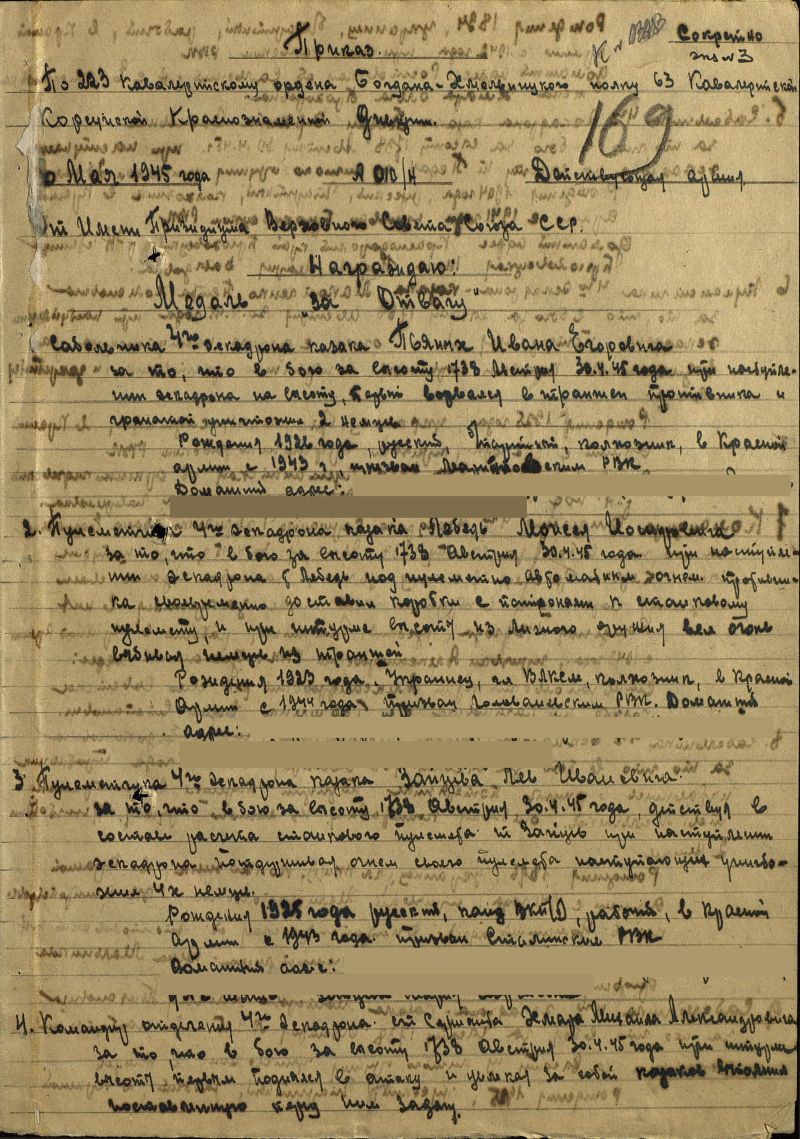 Сокретно
экз N 3
Приказ.
По 223 Кавалерийскому ордена Богдана-Хмельницкого полку 63 Кавалерийской
Корсунской Краснознаменной Дивизии.
169
Мая 1945 года № 010/н Действующая армия
От Имени Призидиума Верховного Совета Союза ССР.
Награждаю:
Медаль "за Отвагу"
Сабельника 4го эскадрона казака Пьяных Ивана Егоровича
за то, что в бою за высоту 1733 Австрия 30.4.45 года при наступле-
нии эскадрона на высоту, первый ворвался в траншеи противника и
гранатой уничтожил 2 немцев
Рождения 1926 года, русский, колхозник, в Красной
армии с 1943 г, призван РВК
Домашний адрес:
2. Пулеметчика 4го эскадрона казака Лебедь Моисея Иосиповича
за то, что в бою за высоту 1733 Австрия 30.4.45 года при наступле-
нии эскадрона т Лебедь под пулеметно автоматным огнем противни-
ка своевременно доставил коробки с патронами к станковому
пулемету, и при штурме высоты из личного оружия вел огонь
выбивая немцев из траншей
Рождения 1923 года, Украинец, чл ВЛКСМ, колхозник, в Красной
Армии с 1944 года призван Голованевским РВК. Домашний
адрес:
3. Пулеметчика 4го эскадрона казака Зайцева Лев Ивановича
за то, что в бою за высоту 1733 Австрия, 30.4.45 года, действуя в
составе расчета станкового пулемета т Зайцев при наступлении
эскадрона поддерживая огнем своего пулемета наступающих уничто-
жил 4х немцев.
Рождения 1925 года русский, канд ВКП(б), рабочий, в Красной
Армии с 1943 года призван Сталинским РВК
Домашний адрес:
4. Командир отделения 4го эскадрона ст Сержанта Хмара Михаила Александровича
за то что в бою за высоту 1733 Австрия 30.4.45 года при штурме
высоты первым поднялся в атаку и увлекая за собой казаков выполнил
поставленную перед ним задачу.